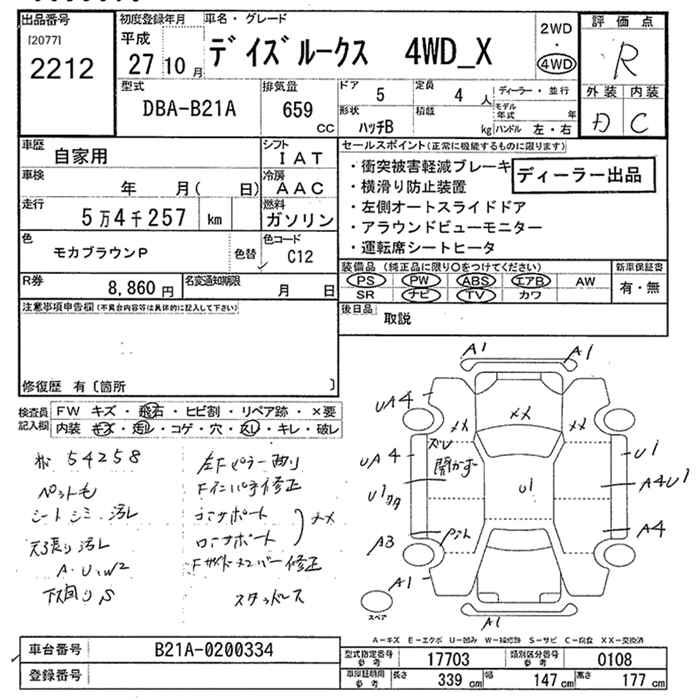 出品番号
[2077]
2212
初度登録年月
平成
27 10 月
車名・グレード
デイズルークス 4WD_X
2WD
4WD
評価点
R
外装 内装
D C
型式
DBA-B21A
排気量
659 CC
ドア
5
定員
4 人
形状
ハッチB
積載
kg
ディーラー・並行
モデル年式 年
ハンドル 左・右
車歴
自家用
シフト
IAT
車検
年 月( 日)
冷房
AAC
走行
5万4千257 km
燃料
ガソリン
色
モカブラウンP
色替
色コード
C12
R券
8,860 円
名変通知期限
月 日
セールスポイント(正常に機能するものに限ります)
・衝突被害軽減ブレーキ
・横滑り防止装置
・左側オートスライドドア
・アラウンドビューモニター
・運転席シートヒータ
ディーラー出品
装備品(純正品に限り○をつけてください)
PS PW ABS エアB AW
SR ナビ TV カワ
新車保証書
有・無
後日品
取説
注意事項申告欄(不具合内容等は具体的に記入して下さい)
修復歴 有〔箇所 〕
検査員記入欄
FW キズ・飛石・ヒビ割・リペア跡・×要
内装 キズ・汚レ・コゲ・穴・スレ・キレ・破レ
54258
ペットも
シートシミ 汚レ
天張り汚レ
A.U.W2
下回りS
左Fピラー曲り
Fインパネ修正
コアサポート
ロアサポート
××
Fサイドメンバー修正
スタッドレス
A1 A1
UA4
×× ×× ××
UA4
ズレ
開かず
U1
U1
A4U1
A4
A3
A1
U1
A1
スペア
A-キズ E-エクボ U-凹み W-補修跡 S-サビ C-腐食 XX-交換済
車台番号
B21A-0200334
登録番号
型式指定番号 参考
17703
類別区分番号 参考
0108
車庫証明用 参考
長さ 339 cm
幅 147 cm
高さ 177 cm